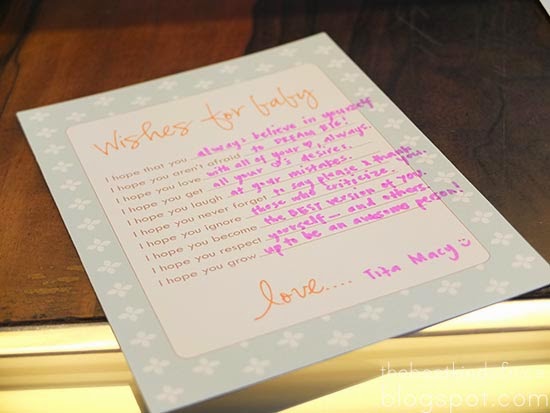 Wishes for baby
I hope that you always believe in yourself
I hope you aren't afraid to DREAM BIG!
I hope you love with all of your ♥, always.
I hope you get all your ♥'s desires.
I hope you laugh at your mistakes.
I hope you never forget to say please & thank you.
I hope you ignore those who criticize you.
I hope you become the BEST version of you.
I hope you respect yourself — and others
I hope you grow up to be an awesome person!
love.... Tita Macy
blogspot.com